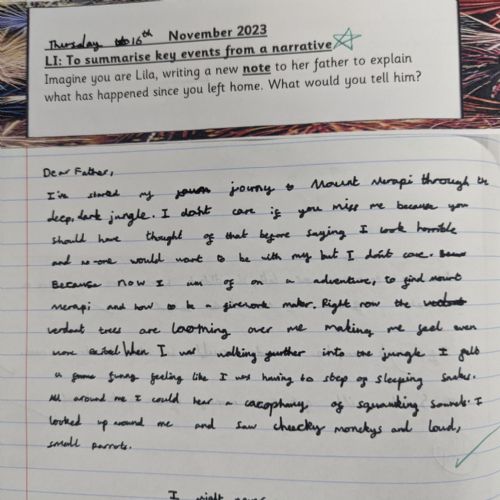 Thursday 16th November 2023
LI: To summarise key events from a narrative
Imagine you are Lila, writing a new note to her father to explain
what has happened since you left home. What would you tell him?
Dear Father,
I've started my journy to Mount Merapi through the
deep, dark jungle. I don't care if you miss me because you
should have thought of that before saying I look horrible
and no-one would want to be with my but I don't care.
Because now I am of on a adventure, to find mount
merapi and how to be a firework maker. Right now the
verdant trees are looming over me making me feel even
more When I was walking further into the jungle I felt
a funny feeling like I was having to step of sleeping snakes.
All around me I could hear a cacophany of squawking sounds. I
looked up around me and saw cheecky monekys and loud,
small parrots.
I might never